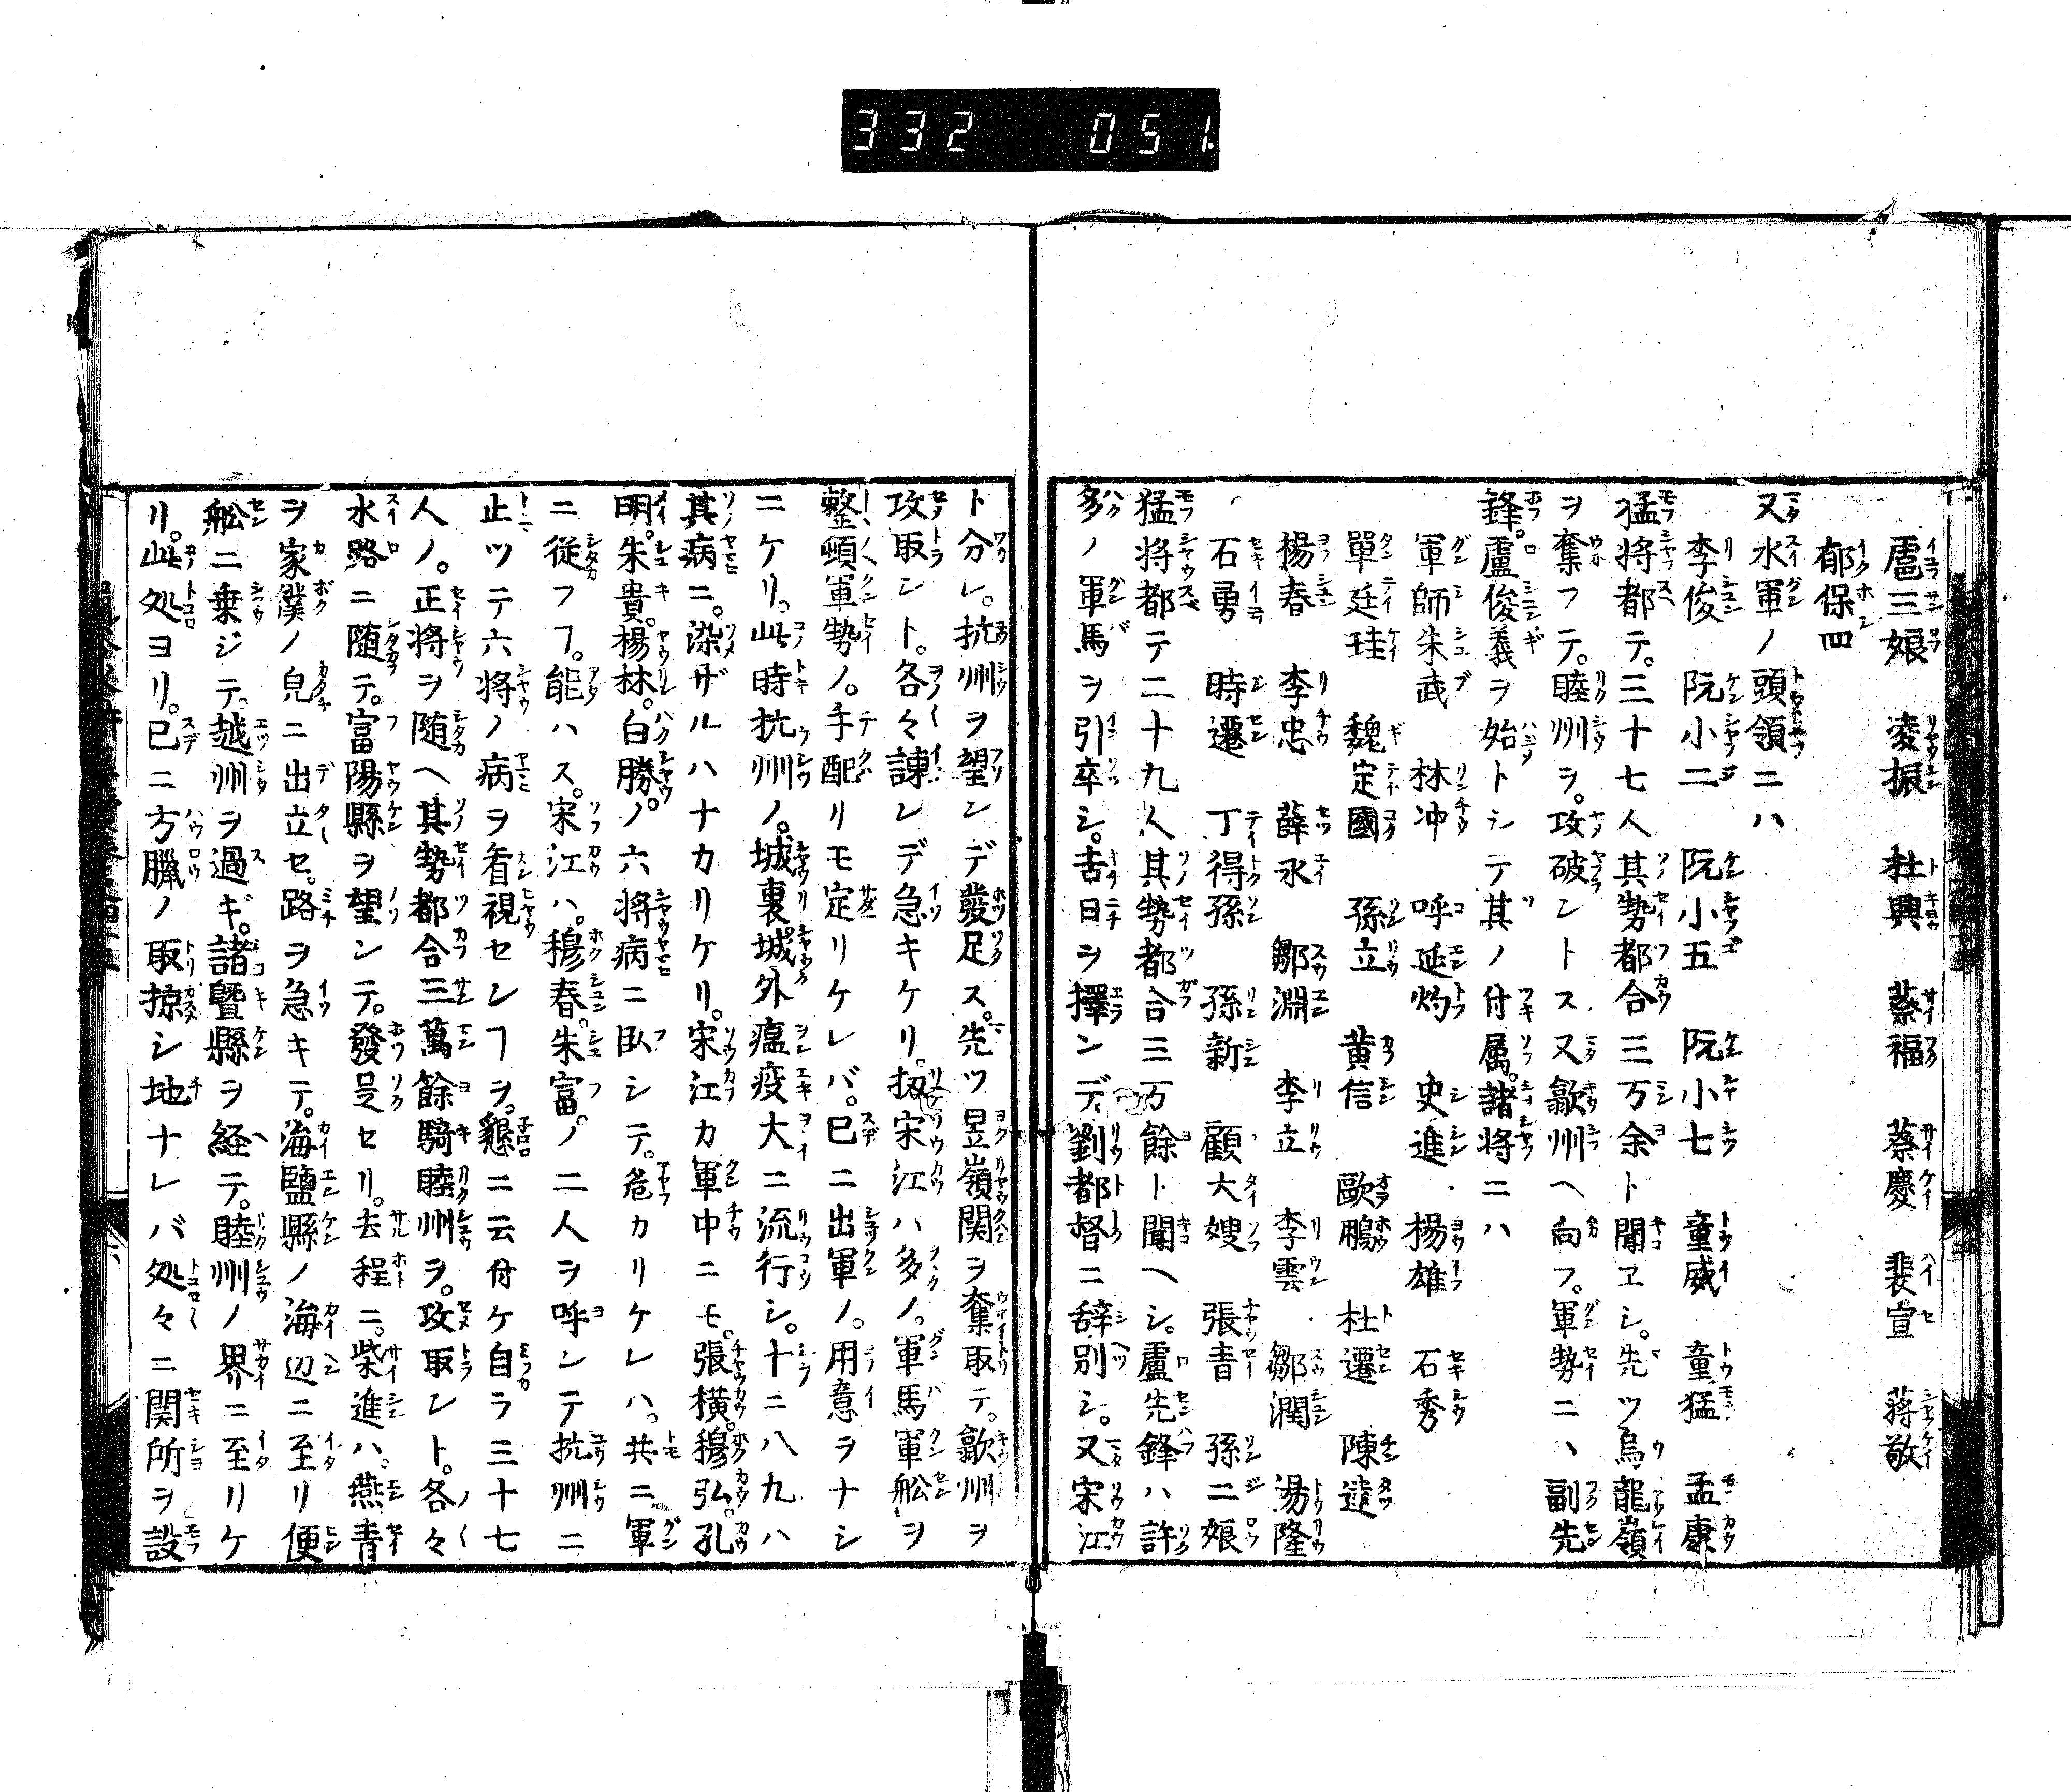 332 051.
扈三娘 凌振 杜興 蔡福 蔡慶 裴宣 蒋敬
郁保四
又水軍ノ頭領ニハ
李俊 阮小二 阮小五 阮小七 童威 童猛 孟康
猛将都テ。三十七人其勢都合三万余ト聞ヱシ。先ツ烏龍嶺
ヲ奪フテ。睦州ヲ。攻破ントス又歙州ヘ向フ。軍勢ニハ副先
鋒。盧俊義ヲ始トシテ其ノ付属。諸将ニハ
軍師朱武 林冲 呼延灼 史進 楊雄 石秀
單廷珪 魏定國 孫立 黄信 歐鵬 杜遷 陳達
楊春 李忠 薛永 鄒淵 李立 李雲 鄒潤 湯隆
石勇 時遷 丁得孫 孫新 顧大嫂 張青 孫二娘
猛将都テ二十九人其勢都合三万餘ト聞ヘシ。盧先鋒ハ許
多ノ軍馬ヲ引卒シ。吉日ヲ擇ンデ劉都督ニ辞別シ。又宋江
ト分レ。抗州ヲ望ンデ發足ス。先ツ昱嶺関ヲ奪取テ。歙州ヲ
攻取ント。各々諫レデ急キケリ。扨宋江ハ多ノ。軍馬軍舩ヲ
整頓軍勢ノ。手配リモ定リケレバ。已ニ出軍ノ。用意ヲナシ
ニケリ。此時抗州ノ。城裏城外瘟疫大ニ流行シ。十ニ八九ハ
其病ニ。染ザルハナカリケリ。宋江カ軍中ニモ。張横。穆弘。孔
明。朱貴。楊林。白勝。ノ六将病ニ臥シテ。危カリケレハ。共ニ軍
ニ従フフ。能ハス。宋江ハ。穆春。朱富。ノ二人ヲ呼ンテ抗州ニ
止ツテ六将ノ病ヲ看視センフヲ。懇ニ云付ケ自ラ三十七
人ノ。正将ヲ随ヘ其勢都合三萬餘騎睦州ヲ。攻取ント。各々
水路ニ随テ。富陽縣ヲ望ンテ。發足セリ。去程ニ。柴進ハ。燕青
ヲ家僕ノ皃ニ出立セ。路ヲ急キテ。海鹽縣ノ海辺ニ至リ便
舩ニ乗ジテ。越州ヲ過ギ。諸曁縣ヲ経テ。睦州ノ界ニ至リケ
リ。此処ヨリ。已ニ方臘ノ取掠シ地ナレバ処々ニ関所ヲ設